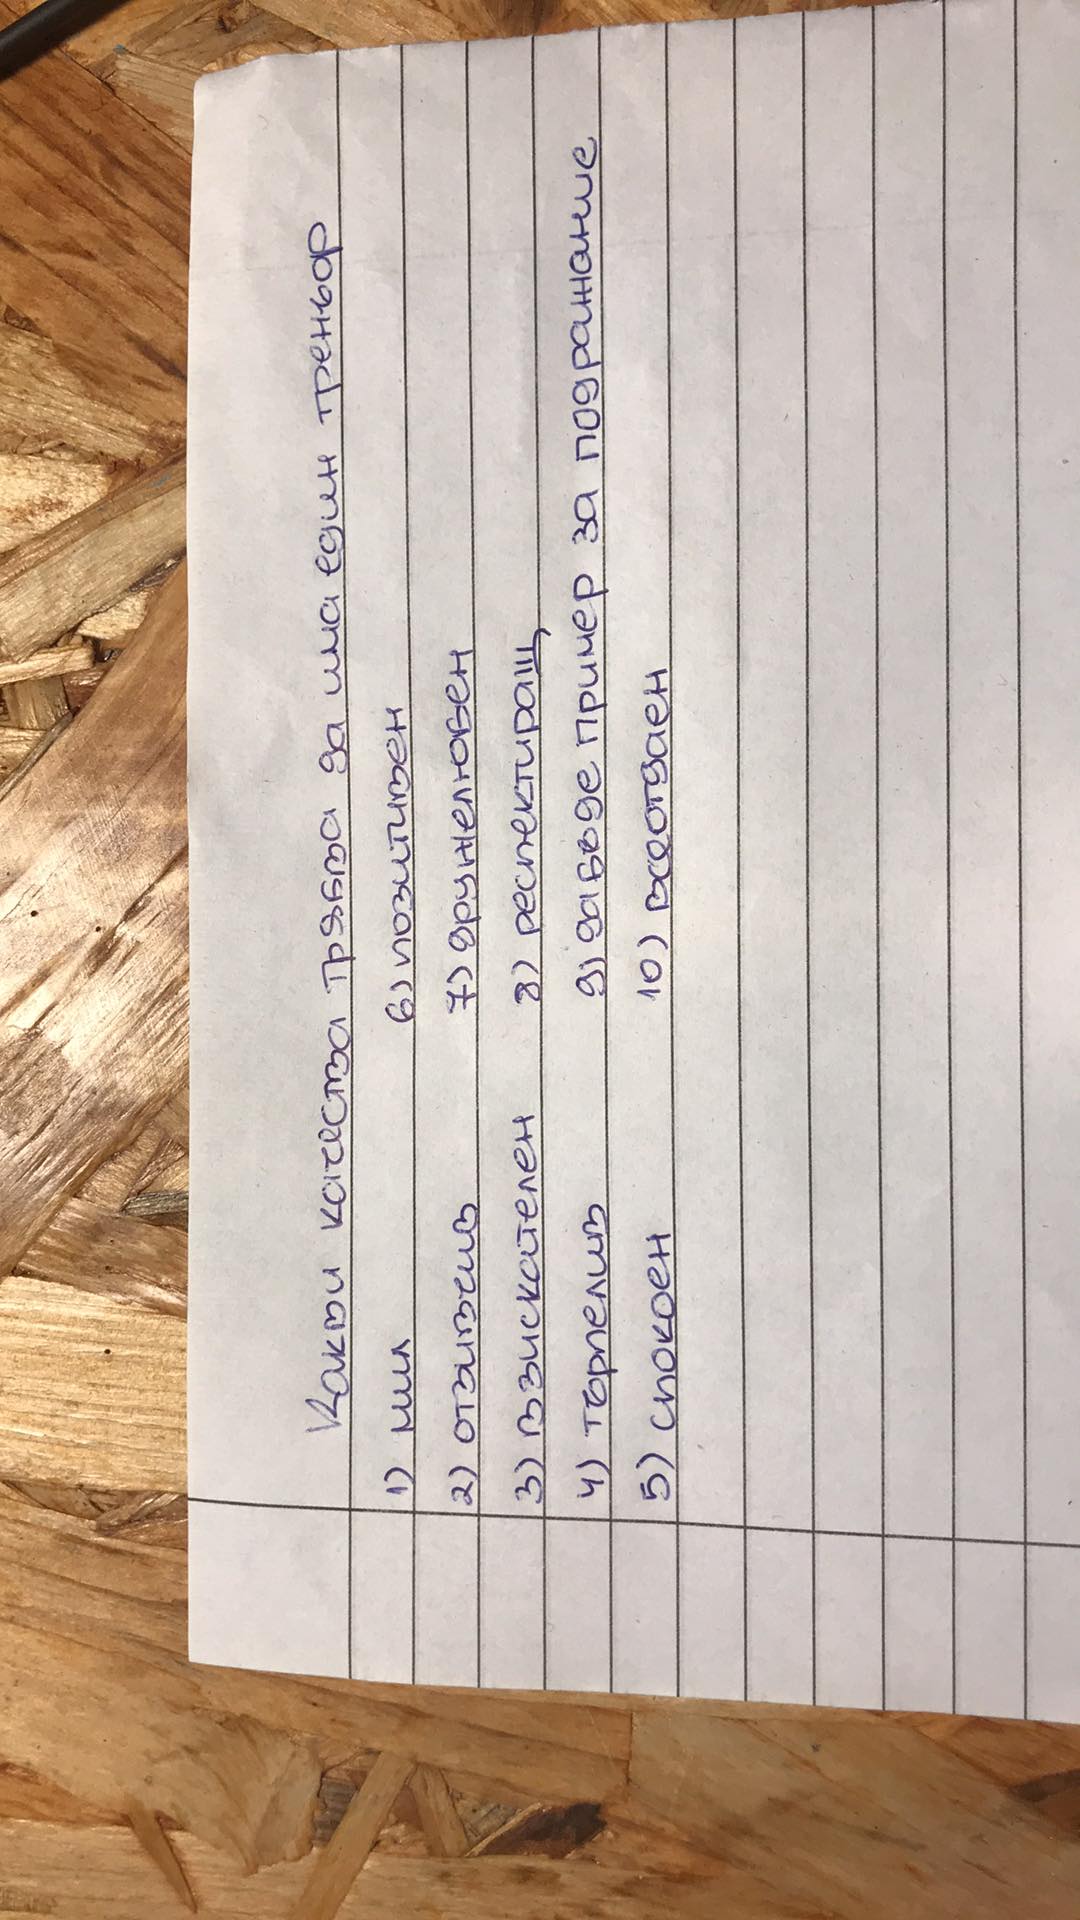 Какви качества трябва да има един треньор
1) мил 6) позитивен
2) отзивчив 7) дружелювен
3) взискателен 8) респектиращ
4) търпелив 9) давъде пример за подражание
5) спокоен 10) всеотдаен